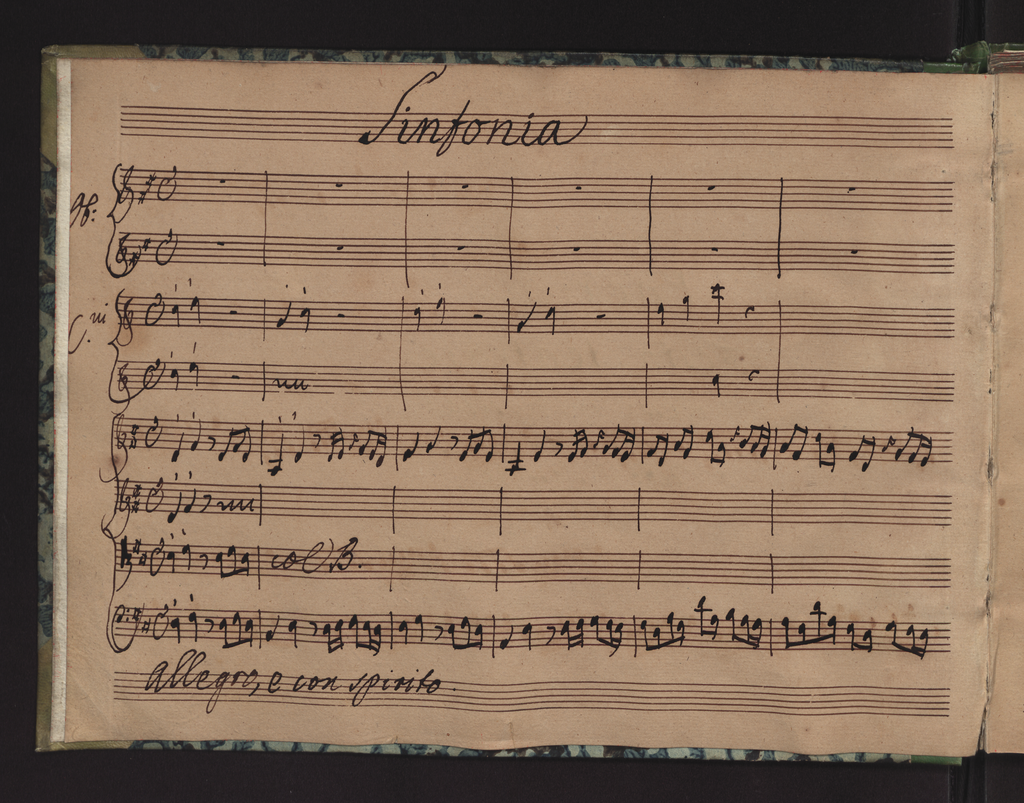 Sinfonia
Ob:
C.ni
col B.
Allegro, e con spirito.